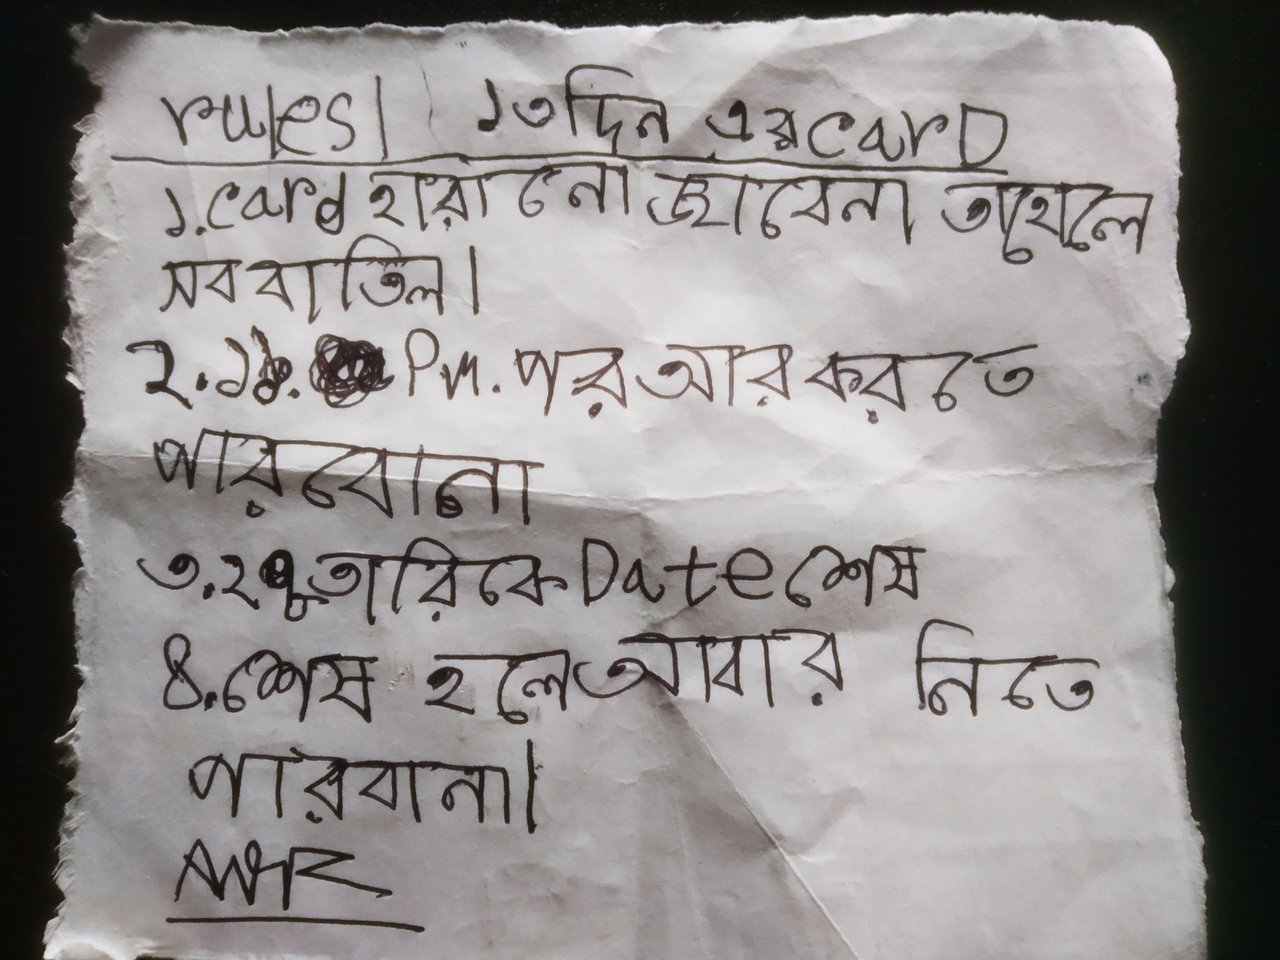 rules। ১৩দিন এরcarD
১.card হারানো জাবেনা তাহোলে
সব বাতিল।
২.১১. Pm. পর আর করতে
পারবোনা
৩.২৭তারিকে Date শেষ
৪.শেষ হলে আবার নিতে
পারবানা।